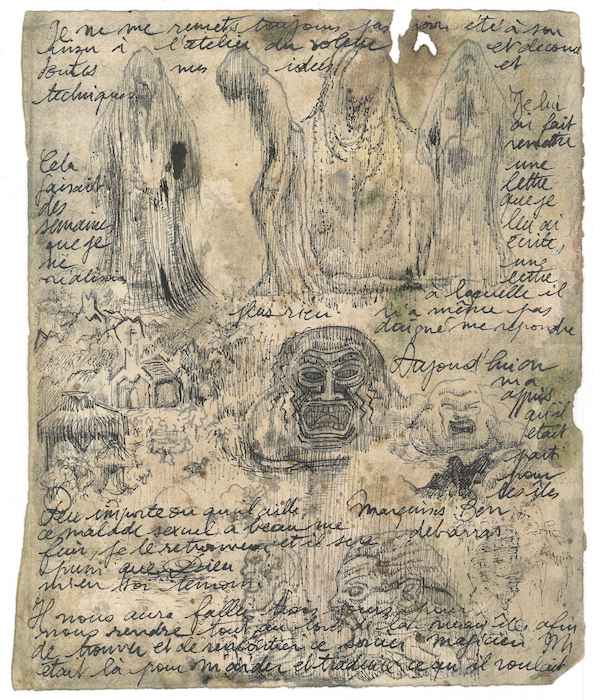 Je ne me remets toujours pas d'avoir été à son
insu à l'atelier du voleur et découvert
toutes mes idées et
techniques
Cela
faisait
des
semaines
que je
ne
réalisais
plus rien
Je lui
ai fait
remettre
une
lettre
que je
lui ai
écrite,
une
lettre
à laquelle il
n'a même pas
daigné me répondre
Aujourd'hui on
m'a
appris
qu'il
était
parti
pour
les îles
Marquises Bon
débarras
Peu importe où qu'il aille
ce malade sexuel a beau me
fuir, je le retrouverai et il sera
puni que Dieu
m'en soi témoin.
Il nous aura fallu trois jours pour
nous rendre tout au bord de la afin
de trouver et de rencontrer ce sorcier magicien
était là pour m'aider et traduire ce qu'il voulait